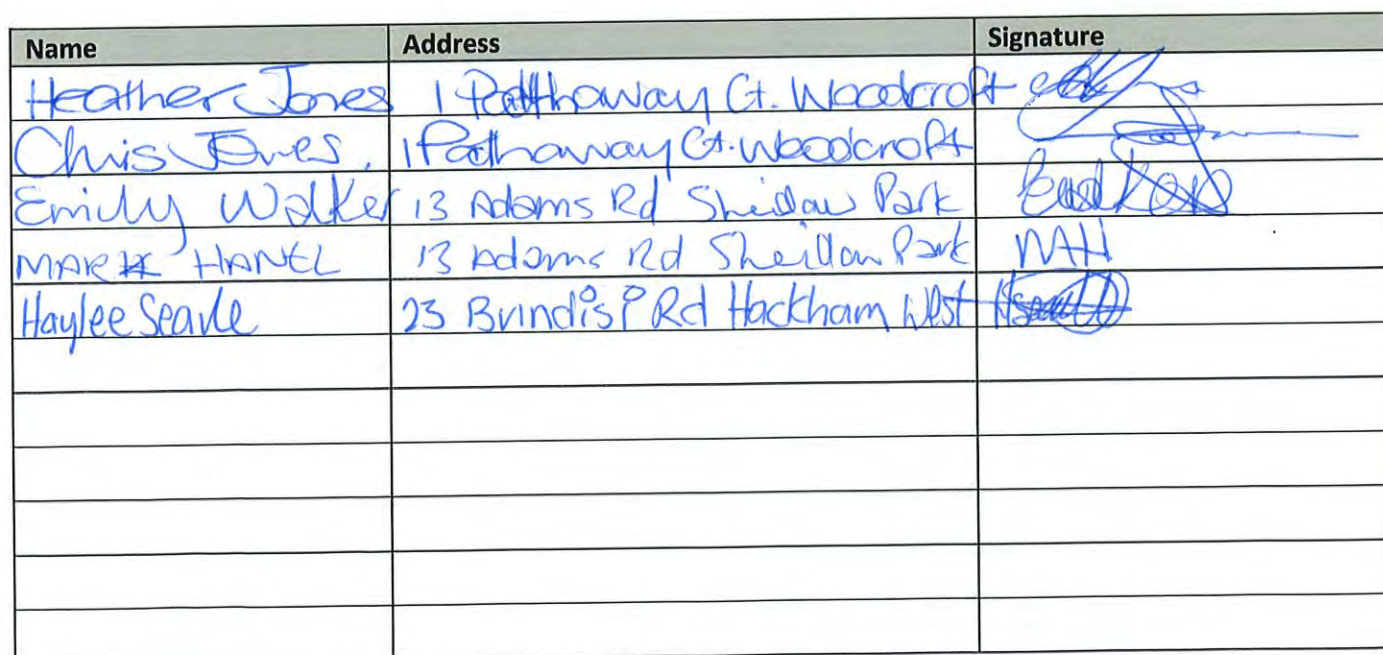 Name Address Signature
Heather Jones 1 Patthaway Ct. Woodcroft
Chris Jones. 1 Pathaway Ct. Woodcroft
Emily Walker 13 Adams Rd Sheidow Park
MARK HANEL 13 Adams Rd Sheillow Park MH
Haylee Searle 23 Brindisi Rd Hackham West